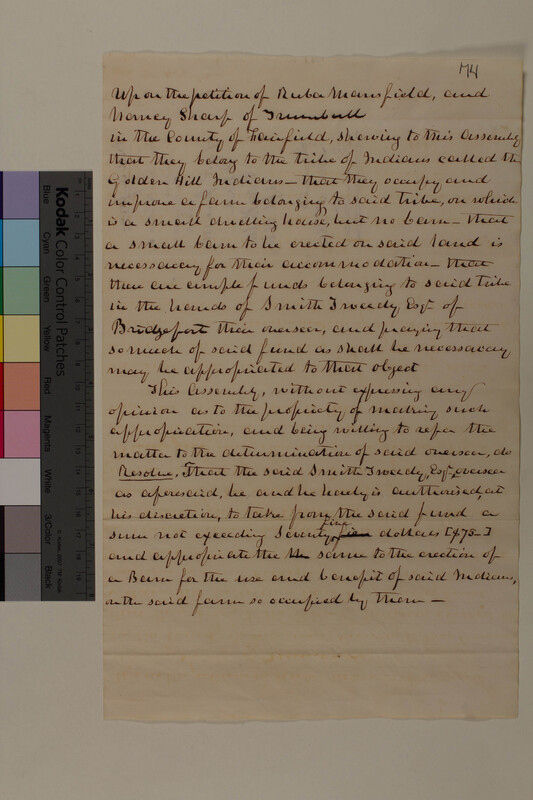 74
Upon the petition of Ruba Mansfield, and
Nancy Sharp of Trumbull
in the County of Fairfield, shewing to this Assembly
that they belong to the tribe of Indians called the
Golden Hill Indians – that they occupy and
improve a farm belonging to said tribe, on which
is a small dwelling house, but no barn – that
a small barn to be erected on said land is
necessary for their accommodation – that
there are ample funds belonging to said tribe
in the hands of Smith Tweedy Esqr. of
Bridgeport their overseer, and praying that
so much of said fund as shall be necessary
may be appropriated to that object
This Assembly, without expressing any
opinion as to the propriety of making such
appropriation, and being willing to refer the
matter to the determination of said overseer, do
Resolve, That the said Smith Tweedy, Esqr., overseer
as aforesaid, be and he hereby is authorised, at
his discretion, to take from the said fund a
sum not exceeding Seventy five dollars [$75–]
and appropriate the same to the erection of
a Barn for the use and benefit of said Indians,
on the said farm so occupied by them –
Kodak Color Control Patches
Blue
Cyan
Green
Yellow
Red
Magenta
White
3/Color
Black